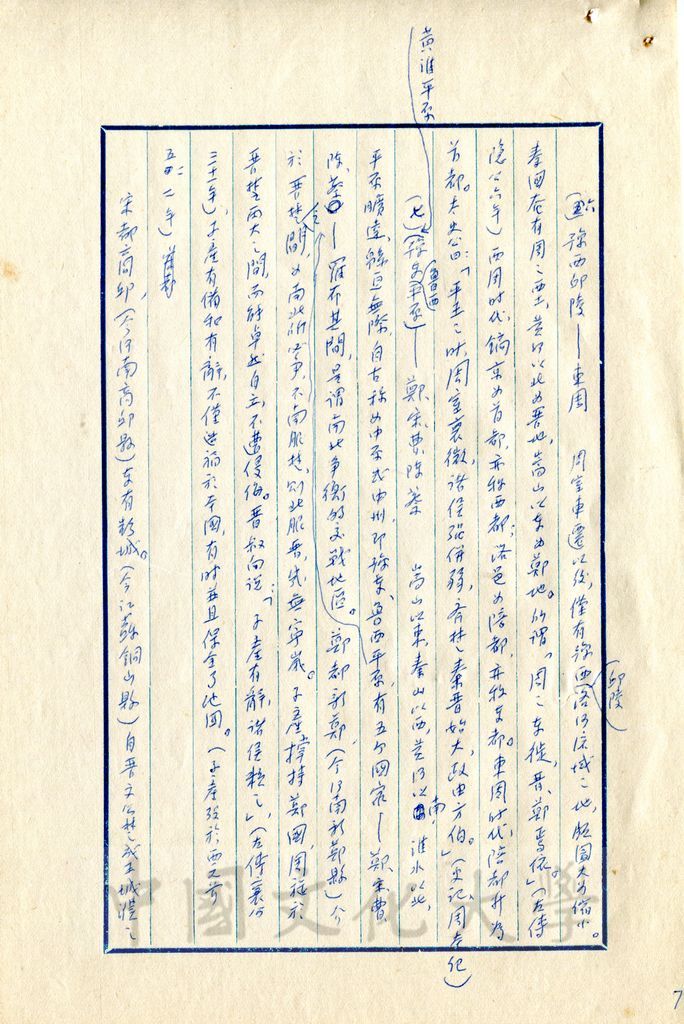 黃淮平原
(六)豫西邱陵——東周 周室東遷以後,僅有豫西洛河流域之地,版圖大為縮小。
邱陵
秦國奄有周之西土,黃河以北為晉地,嵩山以東為鄭地。所謂「周之東遷,晉、鄭焉依。」(左傳
隱公六年)西周時代,鎬京為首都,亦稱西都;洛邑為陪都,亦稱東都。東周時代,陪都升為
首都。太史公曰:「平王之時,周室衰微,諸侯強併弱,齊楚秦晉始大,政由方伯。」(史記,周本紀)
(七)(豫東魯西平原)——鄭宋曹陳蔡 嵩山以東,泰山以西,黃河以南,淮水以北,
平原曠遠,綿亙無際,自古稱為中原或中州,即豫東、魯西平原,有五個國家——鄭宋曹
陳、蔡——羅布其間,是謂南北爭衡的交戰地區。鄭都新鄭,(今河南新鄭縣)介
於晉楚間,為南北所必爭,不南服楚,則北服晉,先無寧歲。子產撐持鄭國,周旋於
晉楚兩大之間,而能卓然自立,不遭侵侮。晉叔向說:「子產有辭,諸侯賴之」,(左傳襄公
三十一年),子產有備和有辭,不僅造福於本國,有時並且保全了他國。(子產歿於西元前
五二二年)
宋都商邱,(今河南商邱縣)東有彭城。(今江蘇銅山縣)自晉文公楚成王城濮之
中國文化大學
7